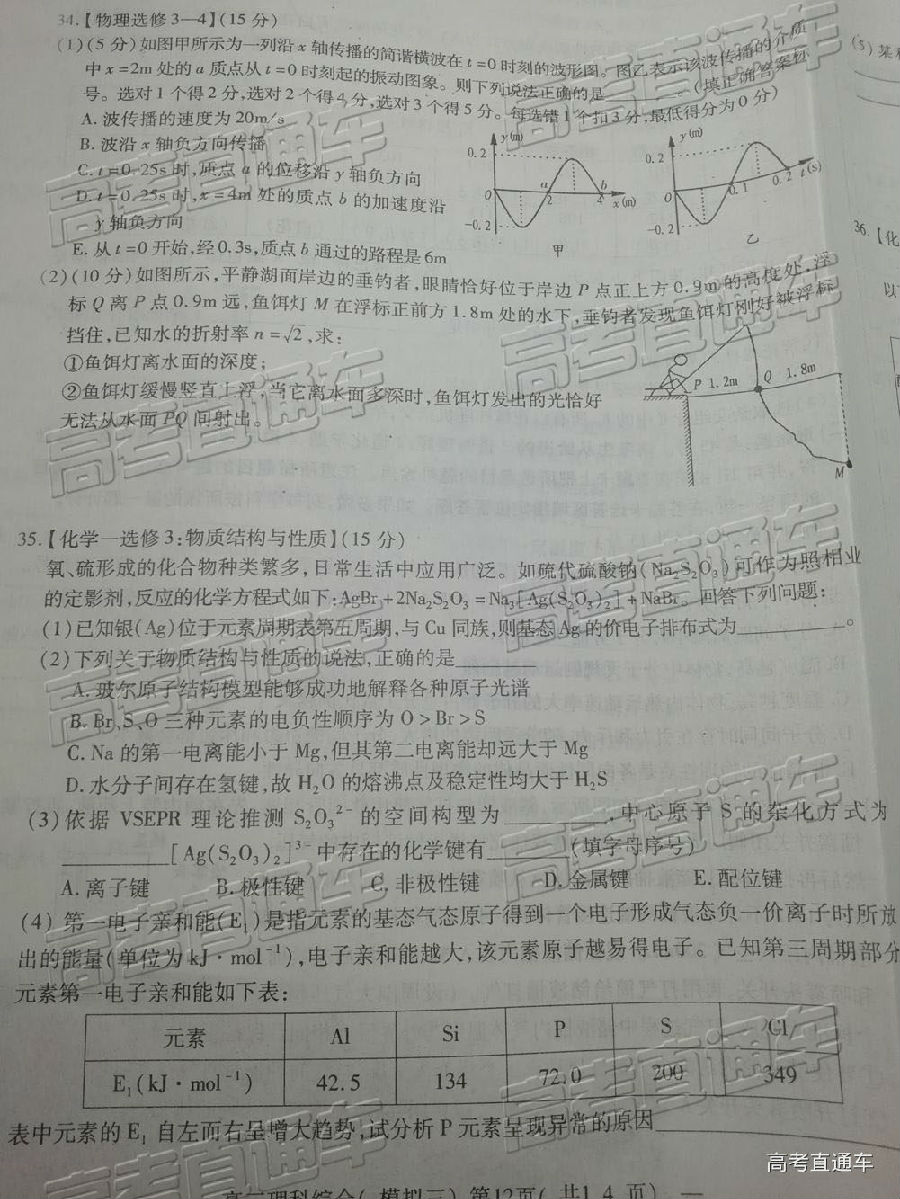 34.【物理选修3—4】(15分)
(1)(5分)如图甲所示为一列沿x轴传播的简谐横波在t=0时刻的波形图。图乙表示该波传播的介质
中x=2m处的a质点从t=0时刻起的振动图象。则下列说法正确的是______(填正确答案标
号。选对1个得2分,选对2个得4分,选对3个得5分。每选错1个扣3分,最低得分为0分)
A.波传播的速度为20m/s
B.波沿x轴负方向传播
C.t=0.25s时,质点a的位移沿y轴负方向
D.t=0.25s时,x=4m处的质点b的加速度沿
y轴负方向
E.从t=0开始,经0.3s,质点b通过的路程是6m
y(m)
0.2
0
-0.2
a
2
b
4
x(m)
甲
y(m)
0.2
0
-0.2
0.1
0.2
t(s)
乙
(2)(10分)如图所示,平静湖面岸边的垂钓者,眼睛恰好位于岸边P点正上方0.9m的高度处,浮
标Q离P点0.9m远,鱼饵灯M在浮标正前方1.8m处的水下,垂钓者发现鱼饵灯刚好被浮标
挡住,已知水的折射率n=√2,求:
①鱼饵灯离水面的深度;
②鱼饵灯缓慢竖直上浮,当它离水面多深时,鱼饵灯发出的光恰好
无法从水面PQ间射出。
P
1.2m
Q
1.8m
M
35.【化学—选修3:物质结构与性质】(15分)
氧、硫形成的化合物种类繁多,日常生活中应用广泛。如硫代硫酸钠(Na₂S₂O₃)可作为照相业
的定影剂,反应的化学方程式如下:AgBr+2Na₂S₂O₃=Na₃[Ag(S₂O₃)₂]+NaBr。回答下列问题:
(1)已知银(Ag)位于元素周期表第五周期,与Cu同族,则基态Ag的价电子排布式为________。
(2)下列关于物质结构与性质的说法,正确的是________
A.玻尔原子结构模型能够成功地解释各种原子光谱
B.Br、S、O三种元素的电负性顺序为O>Br>S
C.Na的第一电离能小于Mg,但其第二电离能却远大于Mg
D.水分子间存在氢键,故H₂O的熔沸点及稳定性均大于H₂S
(3)依据VSEPR理论推测S₂O₃²⁻的空间构型为________,中心原子S的杂化方式为
________[Ag(S₂O₃)₂]³⁻中存在的化学键有______(填字母序号)
A.离子键 B.极性键 C.非极性键 D.金属键 E.配位键
(4)第一电子亲和能(E₁)是指元素的基态气态原子得到一个电子形成气态负一价离子时所放
出的能量(单位为kJ·mol⁻¹),电子亲和能越大,该元素原子越易得电子。已知第三周期部分
元素第一电子亲和能如下表:
元素 Al Si P S Cl
E₁(kJ·mol⁻¹) 42.5 134 72.0 200 349
表中元素的E₁自左而右呈增大趋势,试分析P元素呈现异常的原因________
高三理科综合(模拟三) 第12页(共14页)
(5)某
36.【化
以
高考直通车